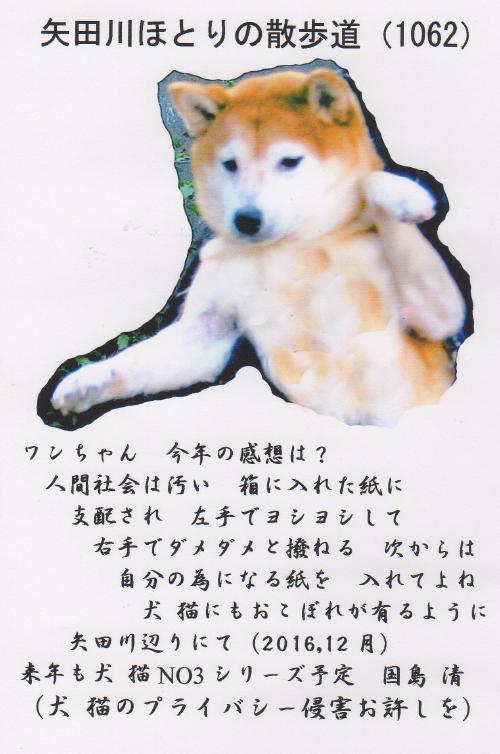 矢田川ほとりの散歩道（1062）
ワンちゃん　今年の感想は？
人間社会は汚い　箱に入れた紙に
支配され　左手でヨシヨシして
右手でダメダメと撥ねる　次からは
自分の為になる紙を　入れてよね
犬 猫にもおこぼれが有るように
矢田川辺りにて（2016,12月）
来年も犬 猫NO3シリーズ予定　国島 清
（犬 猫のプライバシー侵害お許しを）